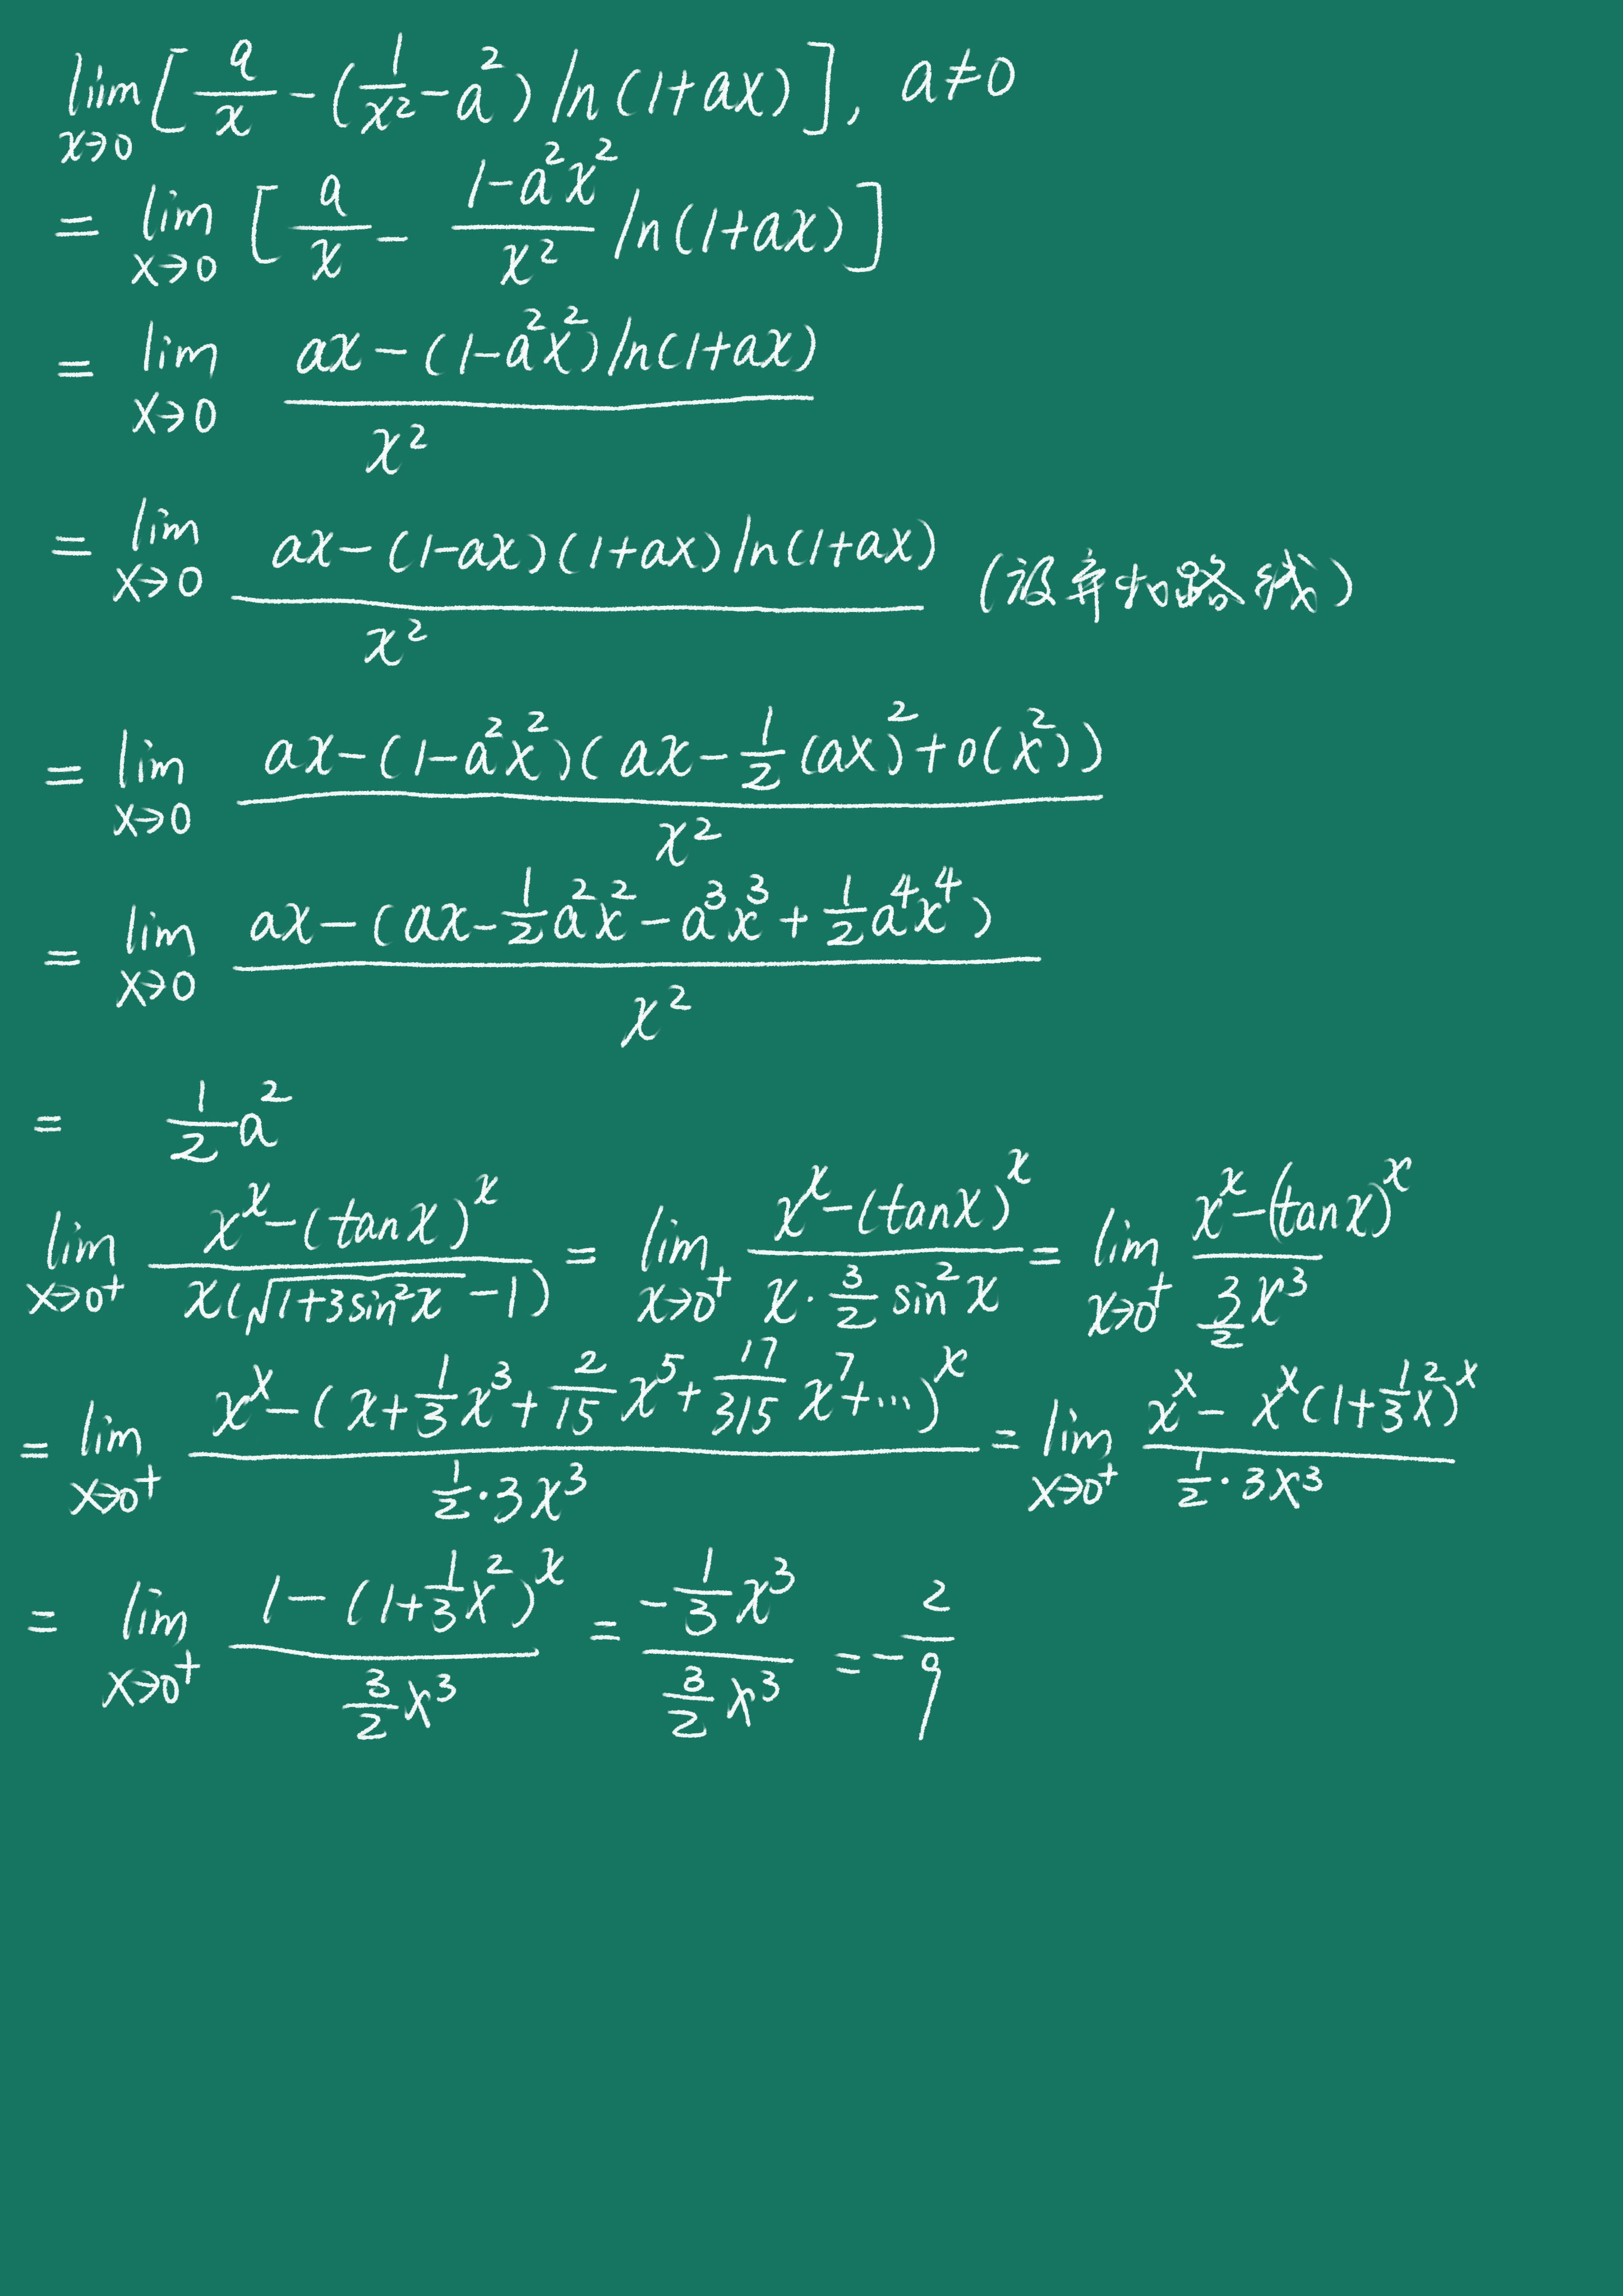 lim x→0 [a/x - (1/x² - a²) ln(1+ax)], a≠0
= lim x→0 [a/x - (1-a²x²)/x² ln(1+ax)]
= lim x→0 (ax - (1-a²x²) ln(1+ax)) / x²
= lim x→0 (ax - (1-ax)(1+ax) ln(1+ax)) / x² (被弃的路线)
= lim x→0 (ax - (1-a²x²)(ax - 1/2 (ax)² + o(x²))) / x²
= lim x→0 (ax - (ax - 1/2 a²x² - a³x³ + 1/2 a⁴x⁴)) / x²
= 1/2 a²
lim x→0⁺ (x^x - (tanx)^x) / (x(√(1+3sin²x) - 1)) = lim x→0⁺ (x^x - (tanx)^x) / (x · 3/2 sin²x) = lim x→0⁺ (x^x - (tanx)^x) / (3/2 x³)
= lim x→0⁺ (x^x - (x + 1/3 x³ + 2/15 x⁵ + 17/315 x⁷ + ...)^x) / (1/2 · 3x³) = lim x→0⁺ (x^x - x^x (1 + 1/3 x²)^x) / (1/2 · 3x³)
= lim x→0⁺ (1 - (1 + 1/3 x²)^x) / (3/2 x³) = (-1/3 x³) / (3/2 x³) = -2/9